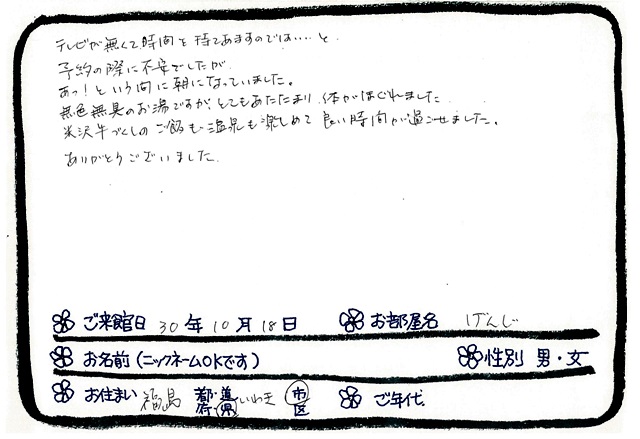 テレビが無くて時間を持てあますのでは……と
予約の際に不安でしたが
あっ!という間に朝になっていました。
無色無臭のお湯ですが、とてもあたたまり、体がほぐれました
米沢牛づくしのご飯も温泉も楽しめて良い時間が過ごせました。
ありがとうございました。
ご来館日 30年10月18日 お部屋名 げんじ
お名前(ニックネームOKです) 性別 男・女
お住まい 福島 都・道・府・県 いわき 市・区 ご年代